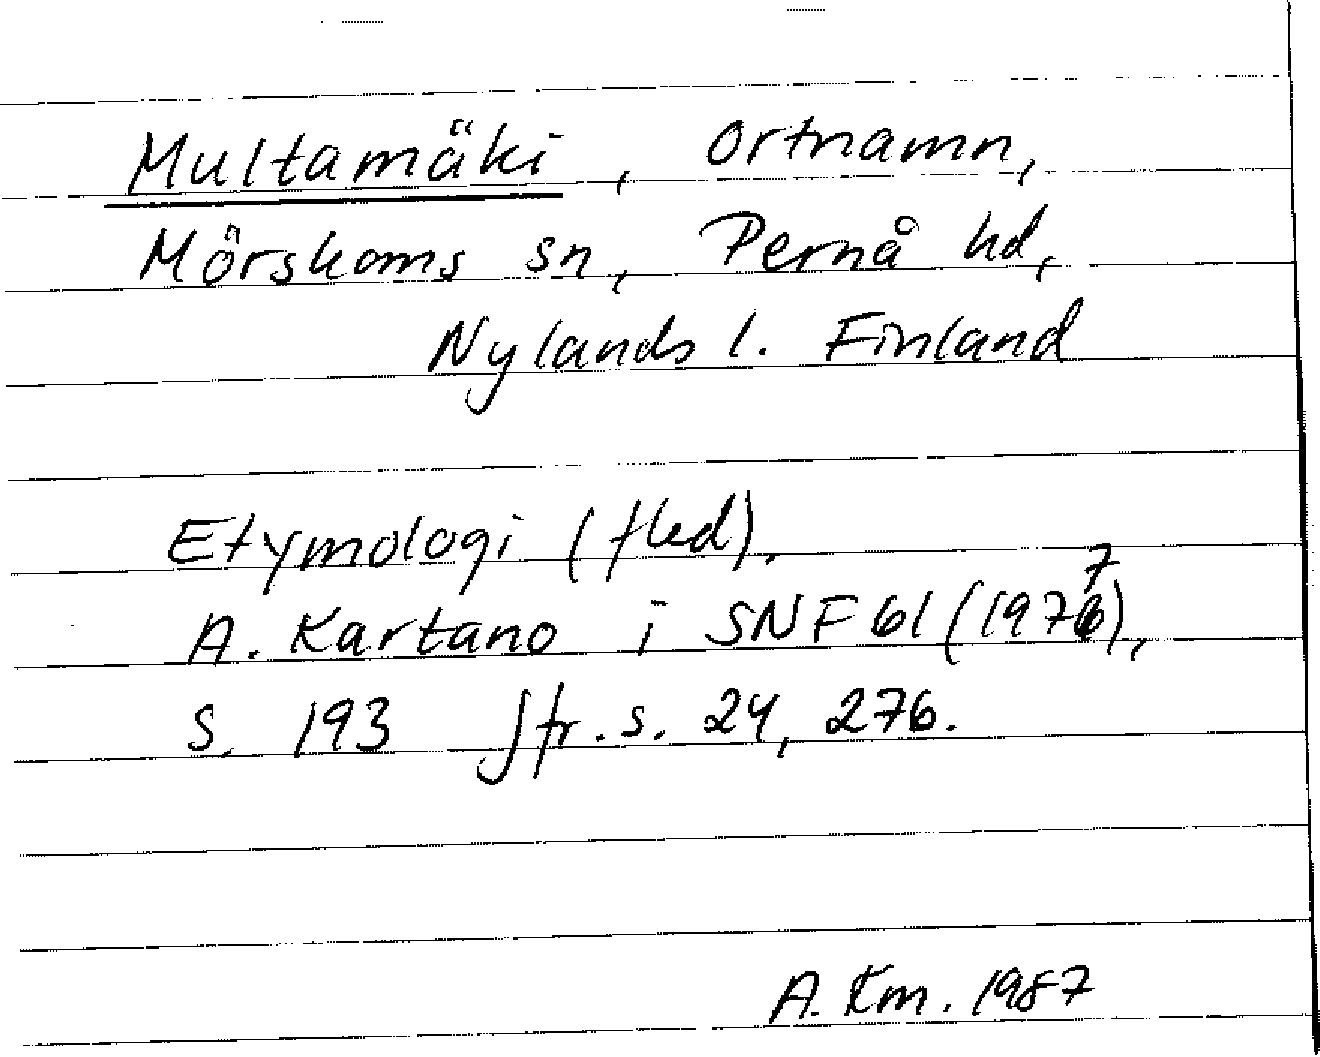 Multamäki, ortnamn,
Mörskoms sn, Pernå hd,
Nylands l. Finland
Etymologi (fled).
A. Kartano i SNF 61 (1977),
s. 193 Jfr. s. 24, 276.
A. Km. 1987